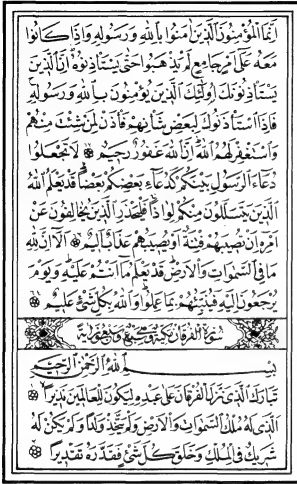 اِنَّمَا الْمُؤْمِنُونَ الَّذِينَ اٰمَنُوا بِاللّٰهِ وَرَسُولِهِ وَاِذَا كَانُوا
مَعَهُ عَلٰٓى اَمْرٍ جَامِعٍ لَمْ يَذْهَبُوا حَتّٰى يَسْتَاْذِنُوهُ اِنَّ الَّذِينَ
يَسْتَاْذِنُونَكَ اُولٰٓئِكَ الَّذِينَ يُؤْمِنُونَ بِاللّٰهِ وَرَسُولِهِ
فَاِذَا اسْتَاْذَنُوكَ لِبَعْضِ شَاْنِهِمْ فَاْذَنْ لِمَنْ شِئْتَ مِنْهُمْ
وَاسْتَغْفِرْ لَهُمُ اللّٰهَ اِنَّ اللّٰهَ غَفُورٌ رَحِيمٌ لَا تَجْعَلُوا
دُعَاءَ الرَّسُولِ بَيْنَكُمْ كَدُعَاءِ بَعْضِكُمْ بَعْضًا قَدْ يَعْلَمُ اللّٰهُ
الَّذِينَ يَتَسَلَّلُونَ مِنْكُمْ لِوَاذًا فَلْيَحْذَرِ الَّذِينَ يُخَالِفُونَ عَنْ
اَمْرِهِ اَنْ تُصِيبَهُمْ فِتْنَةٌ اَوْ يُصِيبَهُمْ عَذَابٌ اَلِيمٌ اَلَا اِنَّ لِلّٰهِ
مَا فِي السَّمٰوَاتِ وَالْاَرْضِ قَدْ يَعْلَمُ مَا اَنْتُمْ عَلَيْهِ وَيَوْمَ
يُرْجَعُونَ اِلَيْهِ فَيُنَبِّئُهُمْ بِمَا عَمِلُوا وَاللّٰهُ بِكُلِّ شَيْءٍ عَلِيمٌ
سُورَةُ الْفُرْقَانِ مَكِّيَّةٌ وَهِيَ سَبْعٌ وَسَبْعُونَ اٰيَةً
بِسْمِ اللّٰهِ الرَّحْمٰنِ الرَّحِيمِ
تَبَارَكَ الَّذِي نَزَّلَ الْفُرْقَانَ عَلٰى عَبْدِهِ لِيَكُونَ لِلْعَالَمِينَ نَذِيرًا
اَلَّذِي لَهُ مُلْكُ السَّمٰوَاتِ وَالْاَرْضِ وَلَمْ يَتَّخِذْ وَلَدًا وَلَمْ يَكُنْ لَهُ
شَرِيكٌ فِي الْمُلْكِ وَخَلَقَ كُلَّ شَيْءٍ فَقَدَّرَهُ تَقْدِيرًا